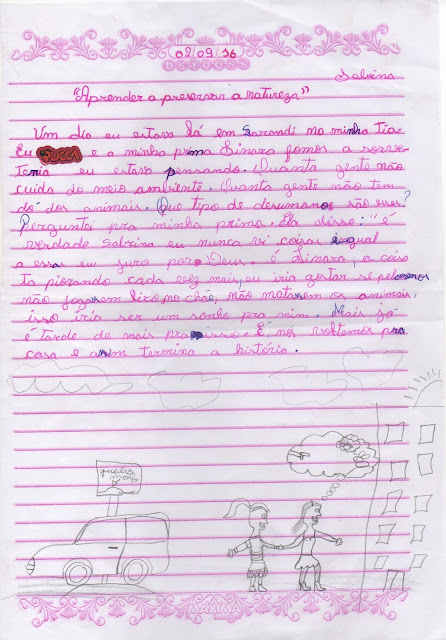 02/09/16
Sabrina
"Aprender a preservar a natureza"
Um dia eu estava lá em Sarandi na minha Tia.
Eu e a minha prima Sinara fomos a sorve-
teria eu estava pensando. Quanta gente não
cuida do meio ambiente. Quanta gente não tem
dó dos animais. Que tipo de desumanos são esses?
Perguntei pra minha prima. Ela disse: "é
verdade Sabrina eu nunca vi coisas ingual
a essa eu juro por Deus. é Sinara, a coisa
ta piorando cada vez mais, eu iria gostar se pelomenos
não jogarem lixo no chão, não matarem os animais,
isso iria ser um sonho pra mim. Mais já
é tarde de mais pra isso. E nós voltemos pra
casa e asim termina a história.
MAXIMA